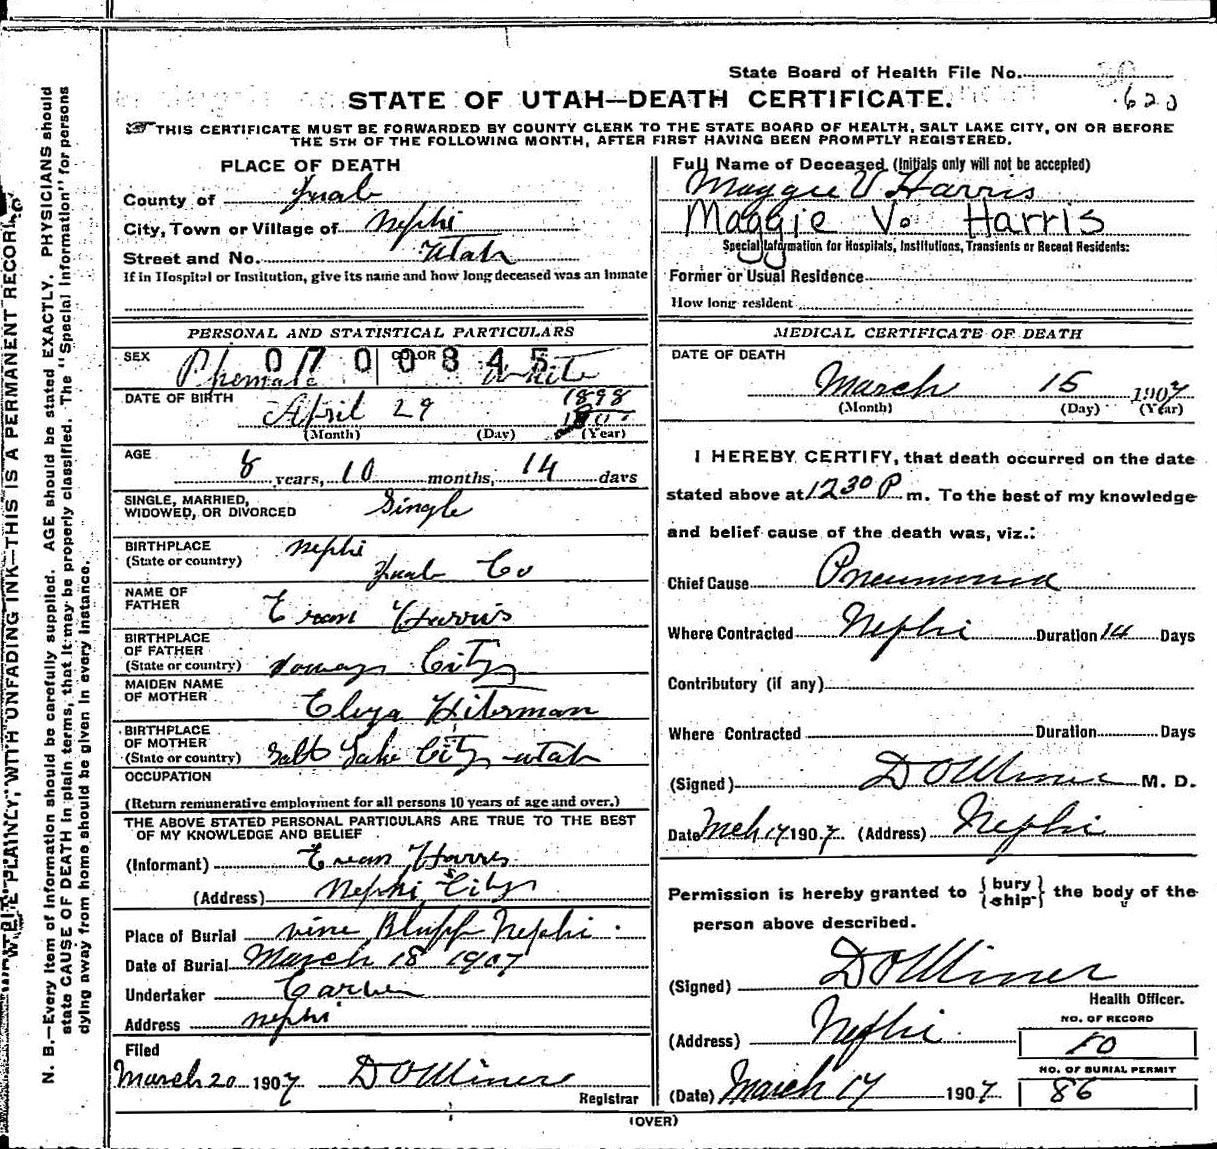 State Board of Health File No.
620
STATE OF UTAH—DEATH CERTIFICATE.
THIS CERTIFICATE MUST BE FORWARDED BY COUNTY CLERK TO THE STATE BOARD OF HEALTH, SALT LAKE CITY, ON OR BEFORE
THE 5TH OF THE FOLLOWING MONTH, AFTER FIRST HAVING BEEN PROMPTLY REGISTERED.
WRITE PLAINLY, WITH UNFADING INK—THIS IS A PERMANENT RECORD
N. B.—Every item of information should be carefully supplied. AGE should be stated EXACTLY. PHYSICIANS should
state CAUSE OF DEATH in plain terms, that it may be properly classified. The "Special Information" for persons
dying away from home should be given in every instance.
PLACE OF DEATH
County of Juab
City, Town or Village of Nephi
Street and No. Utah
If in Hospital or Institution, give its name and how long deceased was an inmate
PERSONAL AND STATISTICAL PARTICULARS
0700845
SEX Phemale COLOR White
DATE OF BIRTH April 29 1898
(Month) (Day) (Year)
AGE
8 years, 10 months, 14 days
SINGLE, MARRIED,
WIDOWED, OR DIVORCED Single
BIRTHPLACE
(State or country) Nephi
Juab Co
NAME OF
FATHER Evan Harris
BIRTHPLACE
OF FATHER
(State or country) City
MAIDEN NAME
OF MOTHER
BIRTHPLACE
OF MOTHER
(State or country) Salt Lake City Utah
OCCUPATION
(Return remunerative employment for all persons 10 years of age and over.)
THE ABOVE STATED PERSONAL PARTICULARS ARE TRUE TO THE BEST
OF MY KNOWLEDGE AND BELIEF
(Informant) Evan Harris
(Address) Nephi City
Place of Burial vine Bluff Nephi
Date of Burial March 18 1907
Undertaker
Address Nephi
Filed
March 20 1907 D O Miner
Registrar
Full Name of Deceased (Initials only will not be accepted)
Maggie V Harris
Maggie V. Harris
Special Information for Hospitals, Institutions, Transients or Recent Residents:
Former or Usual Residence
How long resident
MEDICAL CERTIFICATE OF DEATH
DATE OF DEATH
March 15 1907
(Month) (Day) (Year)
I HEREBY CERTIFY, that death occurred on the date
stated above at 12 30 P m. To the best of my knowledge
and belief cause of the death was, viz.:
Chief Cause Pneumonia
Where Contracted Nephi Duration 14 Days
Contributory (if any)
Where Contracted Duration Days
(Signed) D O Miner M. D.
Date Mch 17 1907. (Address) Nephi
Permission is hereby granted to {bury
ship} the body of the
person above described.
(Signed) D O Miner
Health Officer.
(Address) Nephi
NO. OF RECORD
10
NO. OF BURIAL PERMIT
86
(Date) March 17 1907.
(OVER)